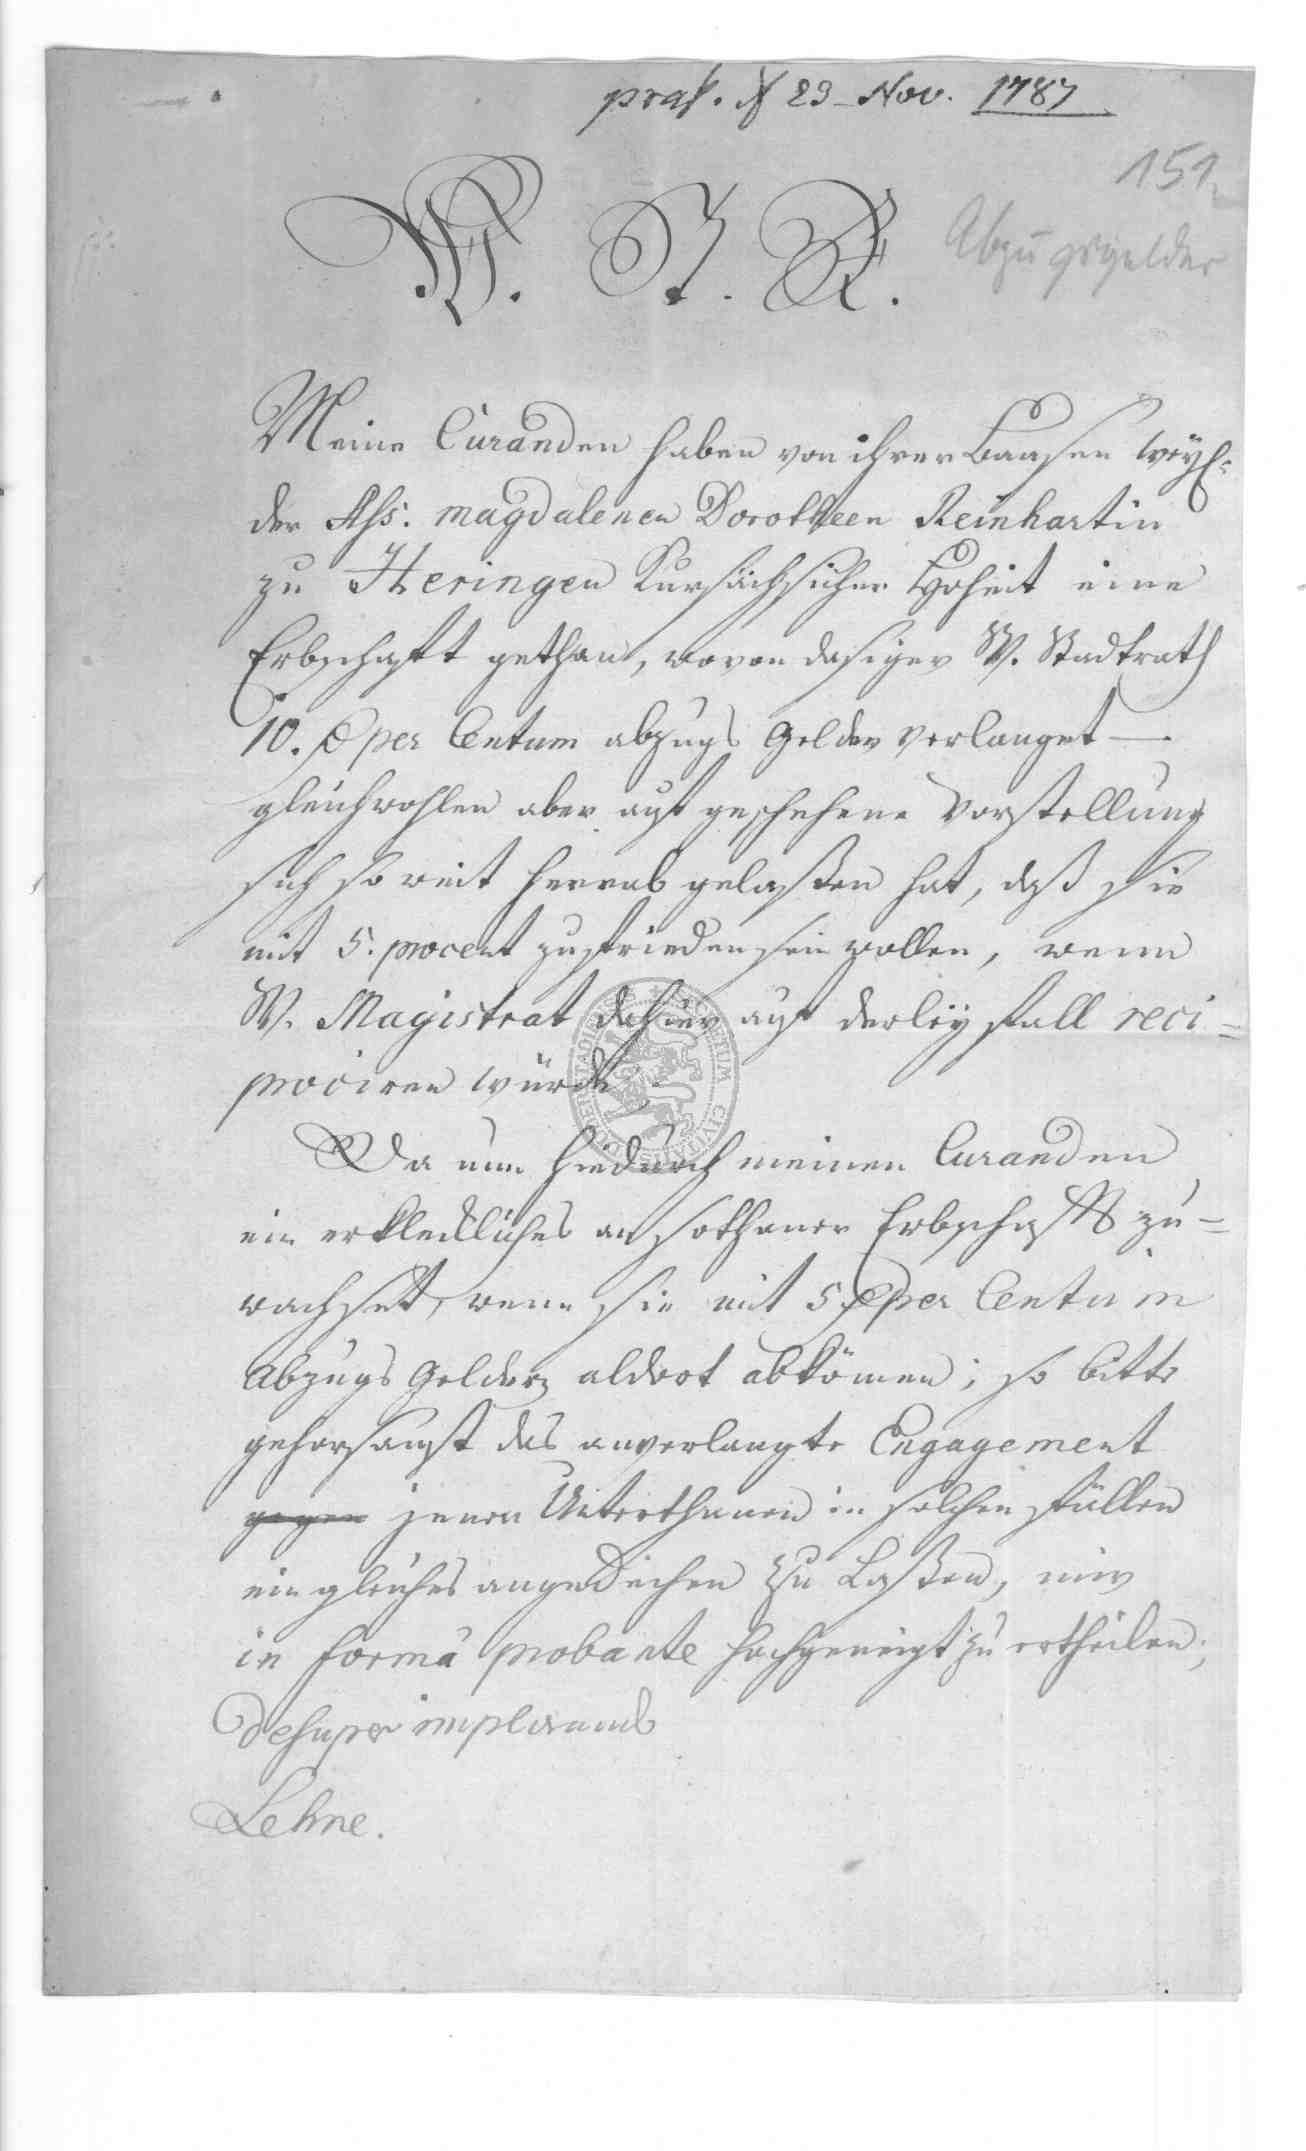 praes. d 23 Nov. 1787
151
Abzugsgelder
W. J. R.
Meine Curanden haben von ihrer Baasen weyl.
der Ass: magdalenen Dorotheen Reinhartin
zu Heringen Kursächsischer Hoheit eine
Erbschaft gethan, wovon dasiger W. Stadtrath
10. per Centum abzugs Gelder verlanget —
gleichwohlen aber auf geschehene Vorstellung
sich so weit herrab gelaßen hat, daß sie
mit 5. procent zufrieden sein wollen, wenn
W. Magistrat dahier auf derley fall reci=
prociren würde
Da nun hiedurch meinen Curanden
ein erkleckliches an sothaner Erbschaft zu=
wachset, wenn sie mit 5 per Centum
Abzugs Gelder aldort abkömen; so bitte
gehorsamst das anverlangte Engagement
gegen jenen Unterthanen in solchen fällen
ein gleiches angedeihen zu Laßen, mir
in formâ probante hochgeneigt zu ertheilen;
desuper implorando
Lehne.